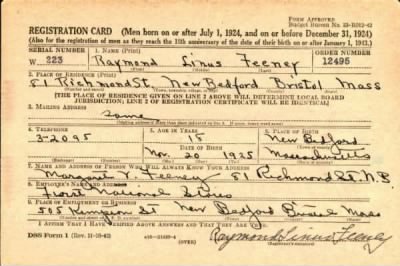 FORM APPROVED
Budget Bureau No. 33-R012-42
REGISTRATION CARD (Men born on or after July 1, 1924, and on or before December 31, 1924)
(Also for the registration of men as they reach the 18th anniversary of the date of their birth on or after January 1, 1943.)
SERIAL NUMBER 1. NAME (Print) ORDER NUMBER
W 223 Raymond Linus Feeney 12495
2. PLACE OF RESIDENCE (Print)
81 Richmond St. New Bedford Bristol Mass
[THE PLACE OF RESIDENCE GIVEN ON LINE 2 ABOVE WILL DETERMINE LOCAL BOARD
JURISDICTION; LINE 2 OF REGISTRATION CERTIFICATE WILL BE IDENTICAL]
3. MAILING ADDRESS
Same
4. TELEPHONE 5. AGE IN YEARS 6. PLACE OF BIRTH
3-2095 18 New Bedford
DATE OF BIRTH
Nov. 20 1925 Massachusetts
7. NAME AND ADDRESS OF PERSON WHO WILL ALWAYS KNOW YOUR ADDRESS
Margaret V. Feeney 81 Richmond St N.B.
8. EMPLOYER'S NAME AND ADDRESS
First National Stores
9. PLACE OF EMPLOYMENT OR BUSINESS
505 Kempton St New Bedford Bristol Mass
I AFFIRM THAT I HAVE VERIFIED ABOVE ANSWERS AND THAT THEY ARE TRUE.
DSS Form 1 (OVER) Raymond Linus Feeney